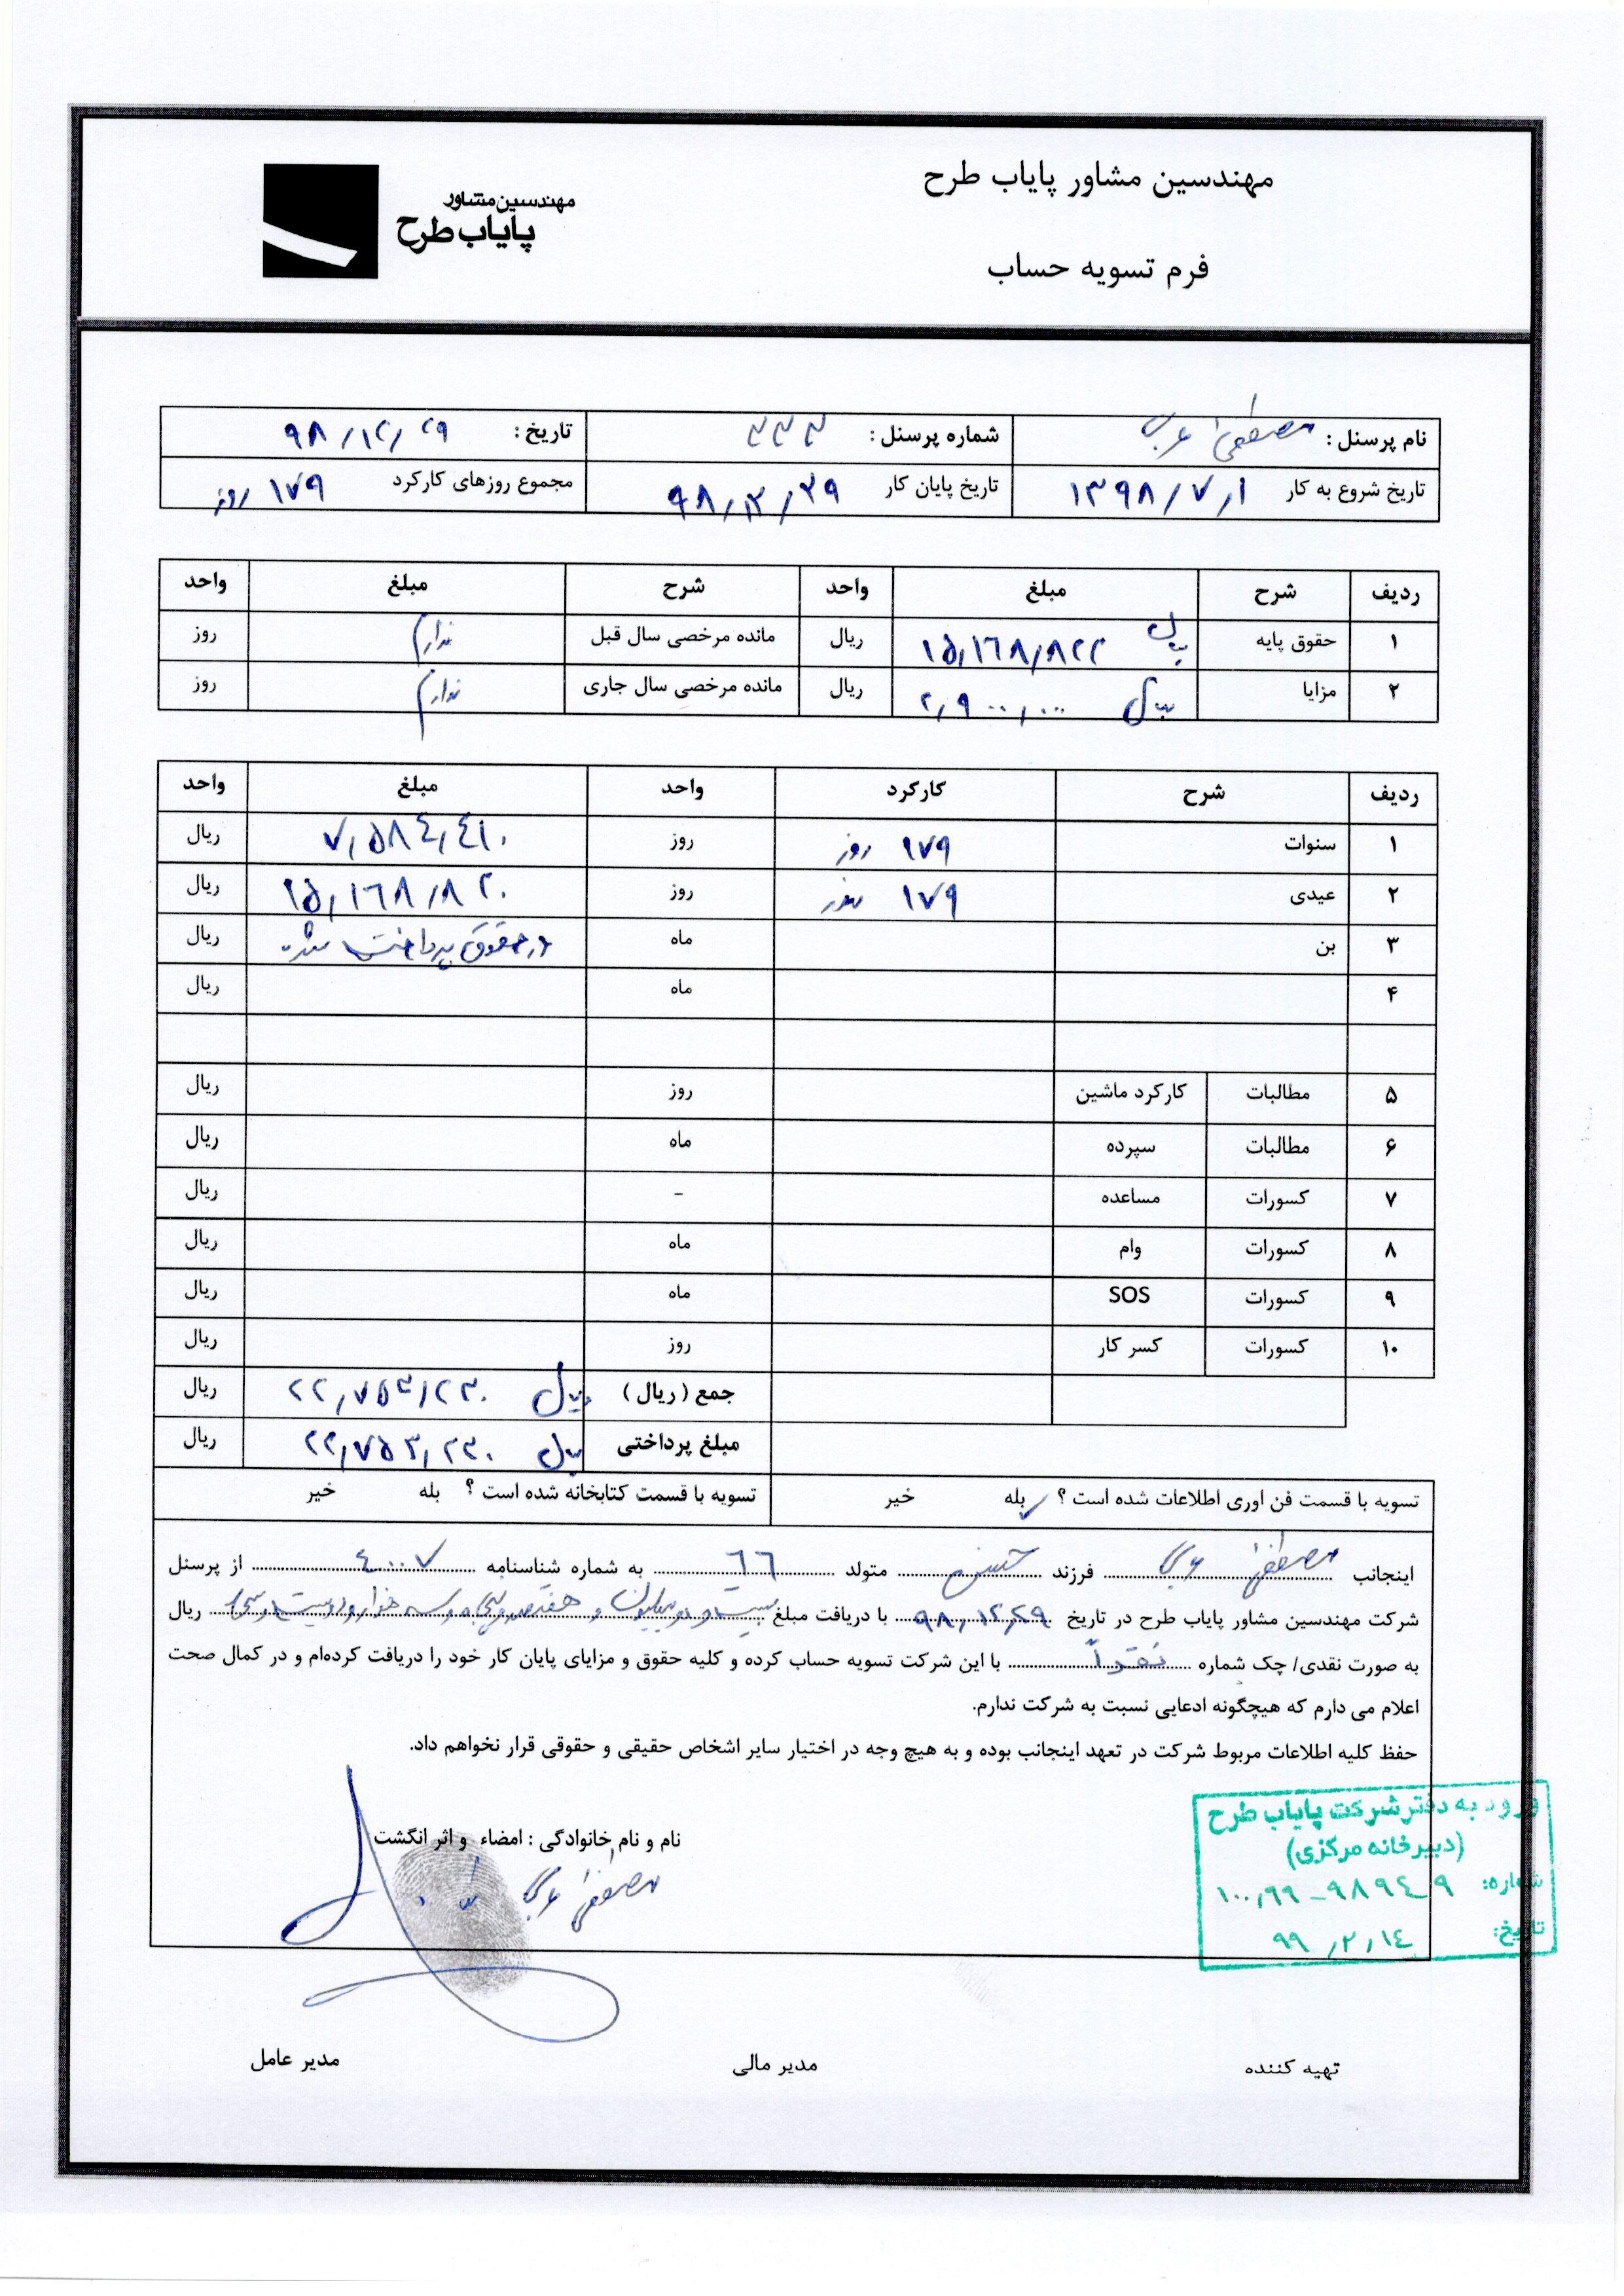 مهندسین مشاور پایاب طرح
مهندسین مشاور
پایاب طرح
فرم تسویه حساب
نام پرسنل : مصطفی عربی شماره پرسنل : ۳۳۳ تاریخ : ۹۸/۱۲/۲۹
تاریخ شروع به کار ۱۳۹۸/۷/۱ تاریخ پایان کار ۹۸/۱۲/۲۹ مجموع روزهای کارکرد ۱۷۹ روز
ردیف شرح مبلغ واحد شرح مبلغ واحد
۱ حقوق پایه ۱۵,۱۶۸/۸۲۲ ریال ریال مانده مرخصی سال قبل ندارم روز
۲ مزایا ۲,۹۰۰,۰۰۰ ریال ریال مانده مرخصی سال جاری ندارم روز
ردیف شرح کارکرد واحد مبلغ واحد
۱ سنوات ۱۷۹ روز روز ۷,۵۸٤,٤۱۰ ریال
۲ عیدی ۱۷۹ روز روز ۱۵,۱۶۸/۸۲۰ ریال
۳ بن ماه در حقوق پرداخت شده ریال
۴ ماه ریال
۵ مطالبات کارکرد ماشین روز ریال
۶ مطالبات سپرده ماه ریال
۷ کسورات مساعده - ریال
۸ کسورات وام ماه ریال
۹ کسورات SOS ماه ریال
۱۰ کسورات کسر کار روز ریال
جمع ( ریال ) ۲۲,۷۵۳/۲۳۰ ریال ریال
مبلغ پرداختی ۲۲,۷۵۳,۲۳۰ ریال ریال
تسویه با قسمت فن اوری اطلاعات شده است ؟ بله ✓ خیر تسویه با قسمت کتابخانه شده است ؟ بله خیر
اینجانب مصطفی عربی فرزند متولد ٦٦ به شماره شناسنامه ٤۰۰۰۷ از پرسنل
شرکت مهندسین مشاور پایاب طرح در تاریخ ۹۸/۱۲/۲۹ با دریافت مبلغ بیست و دو میلیون و هفتصد و پنجاه و سه هزار و دویست و سی ریال
به صورت نقدی/ چک شماره نقداً با این شرکت تسویه حساب کرده و کلیه حقوق و مزایای پایان کار خود را دریافت کرده‌ام و در کمال صحت
اعلام می دارم که هیچگونه ادعایی نسبت به شرکت ندارم.
حفظ کلیه اطلاعات مربوط شرکت در تعهد اینجانب بوده و به هیچ وجه در اختیار سایر اشخاص حقیقی و حقوقی قرار نخواهم داد.
ورود به دفتر شرکت پایاب طرح
(دبیرخانه مرکزی)
شماره: ۱۰۰,۹۹-۹۸۹٤۹
تاریخ: ۹۹/۲/۱٤
نام و نام خانوادگی : امضاء و اثر انگشت
مصطفی عربی
تهیه کننده مدیر مالی مدیر عامل